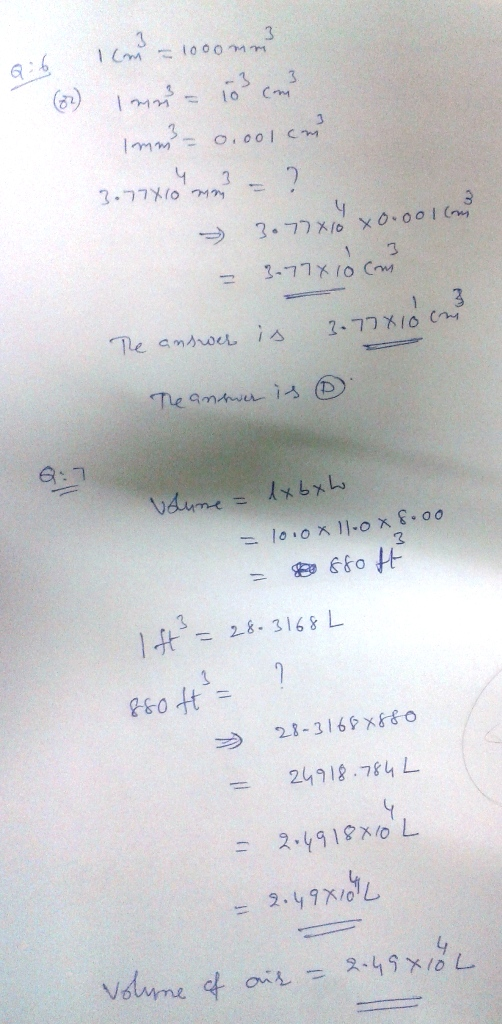 Q:6 1 cm³ = 1000 mm³
(or) 1 mm³ = 10⁻³ cm³
1mm³ = 0.001 cm³
3.77x10⁴ mm³ = ?
⇒ 3.77x10⁴ x0.001 cm³
= 3.77x10¹ cm³
The answer is 3.77x10¹ cm³
The answer is Ⓓ.
Q:7
Volume = lxbxh
= 10.0 x 11.0 x 8.00
= 880 ft³
1 ft³ = 28.3168 L
880 ft³ = ?
⇒ 28.3168x880
= 24918.784 L
= 2.4918x10⁴ L
= 2.49x10⁴ L
Volume of air = 2.49x10⁴ L